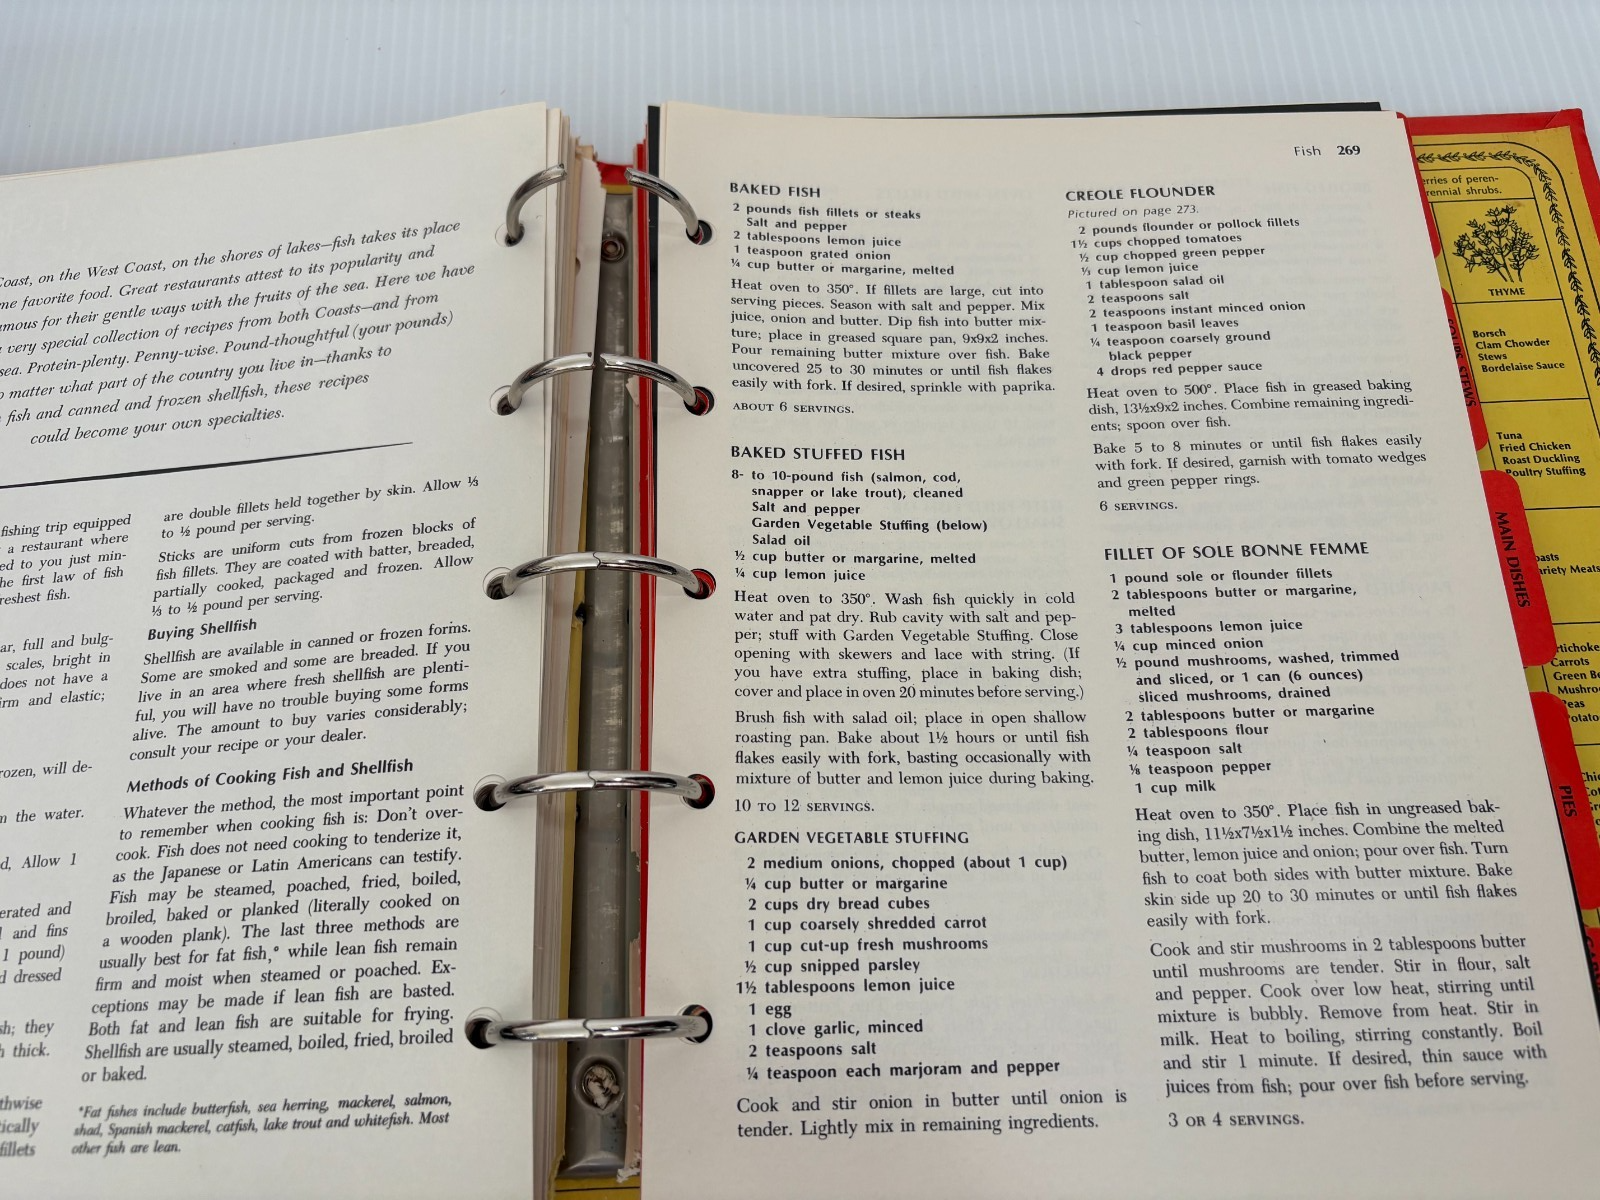 Coast, on the West Coast, on the shores of lakes—fish takes its place
me favorite food. Great restaurants attest to its popularity and
mous for their gentle ways with the fruits of the sea. Here we have
very special collection of recipes from both Coasts—and from
sea. Protein-plenty. Penny-wise. Pound-thoughtful (your pounds)
matter what part of the country you live in—thanks to
fish and canned and frozen shellfish, these recipes
could become your own specialties.
fishing trip equipped
a restaurant where
ed to you just min-
he first law of fish
reshest fish.
ar, full and bulg-
scales, bright in
does not have a
irm and elastic;
rozen, will de-
n the water.
d, Allow 1
erated and
l and fins
1 pound)
d dressed
sh; they
h thick.
thwise
tically
fillets
are double fillets held together by skin. Allow ⅓
to ½ pound per serving.
Sticks are uniform cuts from frozen blocks of
fish fillets. They are coated with batter, breaded,
partially cooked, packaged and frozen. Allow
⅓ to ½ pound per serving.
Buying Shellfish
Shellfish are available in canned or frozen forms.
Some are smoked and some are breaded. If you
live in an area where fresh shellfish are plenti-
ful, you will have no trouble buying some forms
alive. The amount to buy varies considerably;
consult your recipe or your dealer.
Methods of Cooking Fish and Shellfish
Whatever the method, the most important point
to remember when cooking fish is: Don't over-
cook. Fish does not need cooking to tenderize it,
as the Japanese or Latin Americans can testify.
Fish may be steamed, poached, fried, boiled,
broiled, baked or planked (literally cooked on
a wooden plank). The last three methods are
usually best for fat fish,* while lean fish remain
firm and moist when steamed or poached. Ex-
ceptions may be made if lean fish are basted.
Both fat and lean fish are suitable for frying.
Shellfish are usually steamed, boiled, fried, broiled
or baked.
*Fat fishes include butterfish, sea herring, mackerel, salmon,
shad, Spanish mackerel, catfish, lake trout and whitefish. Most
other fish are lean.
Fish 269
BAKED FISH
2 pounds fish fillets or steaks
Salt and pepper
2 tablespoons lemon juice
1 teaspoon grated onion
¼ cup butter or margarine, melted
Heat oven to 350°. If fillets are large, cut into
serving pieces. Season with salt and pepper. Mix
juice, onion and butter. Dip fish into butter mix-
ture; place in greased square pan, 9x9x2 inches.
Pour remaining butter mixture over fish. Bake
uncovered 25 to 30 minutes or until fish flakes
easily with fork. If desired, sprinkle with paprika.
ABOUT 6 SERVINGS.
BAKED STUFFED FISH
8- to 10-pound fish (salmon, cod,
snapper or lake trout), cleaned
Salt and pepper
Garden Vegetable Stuffing (below)
Salad oil
½ cup butter or margarine, melted
¼ cup lemon juice
Heat oven to 350°. Wash fish quickly in cold
water and pat dry. Rub cavity with salt and pep-
per; stuff with Garden Vegetable Stuffing. Close
opening with skewers and lace with string. (If
you have extra stuffing, place in baking dish;
cover and place in oven 20 minutes before serving.)
Brush fish with salad oil; place in open shallow
roasting pan. Bake about 1½ hours or until fish
flakes easily with fork, basting occasionally with
mixture of butter and lemon juice during baking.
10 TO 12 SERVINGS.
GARDEN VEGETABLE STUFFING
2 medium onions, chopped (about 1 cup)
¼ cup butter or margarine
2 cups dry bread cubes
1 cup coarsely shredded carrot
1 cup cut-up fresh mushrooms
½ cup snipped parsley
1½ tablespoons lemon juice
1 egg
1 clove garlic, minced
2 teaspoons salt
¼ teaspoon each marjoram and pepper
Cook and stir onion in butter until onion is
tender. Lightly mix in remaining ingredients.
CREOLE FLOUNDER
Pictured on page 273.
2 pounds flounder or pollock fillets
1½ cups chopped tomatoes
½ cup chopped green pepper
⅓ cup lemon juice
1 tablespoon salad oil
2 teaspoons salt
2 teaspoons instant minced onion
1 teaspoon basil leaves
¼ teaspoon coarsely ground
black pepper
4 drops red pepper sauce
Heat oven to 500°. Place fish in greased baking
dish, 13½x9x2 inches. Combine remaining ingredi-
ents; spoon over fish.
Bake 5 to 8 minutes or until fish flakes easily
with fork. If desired, garnish with tomato wedges
and green pepper rings.
6 SERVINGS.
FILLET OF SOLE BONNE FEMME
1 pound sole or flounder fillets
2 tablespoons butter or margarine,
melted
3 tablespoons lemon juice
¼ cup minced onion
½ pound mushrooms, washed, trimmed
and sliced, or 1 can (6 ounces)
sliced mushrooms, drained
2 tablespoons butter or margarine
2 tablespoons flour
¼ teaspoon salt
⅛ teaspoon pepper
1 cup milk
Heat oven to 350°. Place fish in ungreased bak-
ing dish, 11½x7½x1½ inches. Combine the melted
butter, lemon juice and onion; pour over fish. Turn
fish to coat both sides with butter mixture. Bake
skin side up 20 to 30 minutes or until fish flakes
easily with fork.
Cook and stir mushrooms in 2 tablespoons butter
until mushrooms are tender. Stir in flour, salt
and pepper. Cook over low heat, stirring until
mixture is bubbly. Remove from heat. Stir in
milk. Heat to boiling, stirring constantly. Boil
and stir 1 minute. If desired, thin sauce with
juices from fish; pour over fish before serving.
3 OR 4 SERVINGS.
SOUPS STEWS
MAIN DISHES
PIES
erries of peren-
rennial shrubs.
THYME
Borsch
Clam Chowder
Stews
Bordelaise Sauce
Tuna
Fried Chicken
Roast Duckling
Poultry Stuffing
oasts
ariety Meats
rtichoke
Carrots
Green Be
Mushroo
Peas
Potato